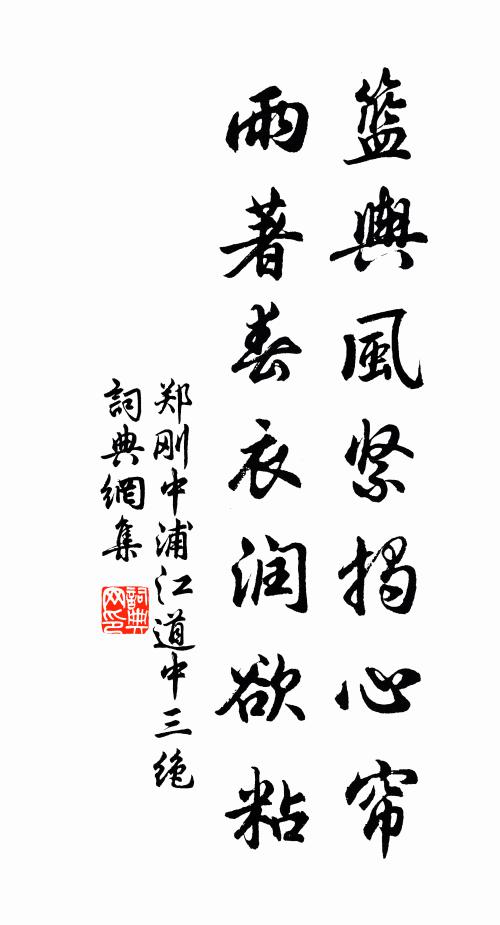 籃輿風緊揭心帘
雨著春衣润欲粘
郑刚中浦江道中三绝
詞典網集
詞典
网印